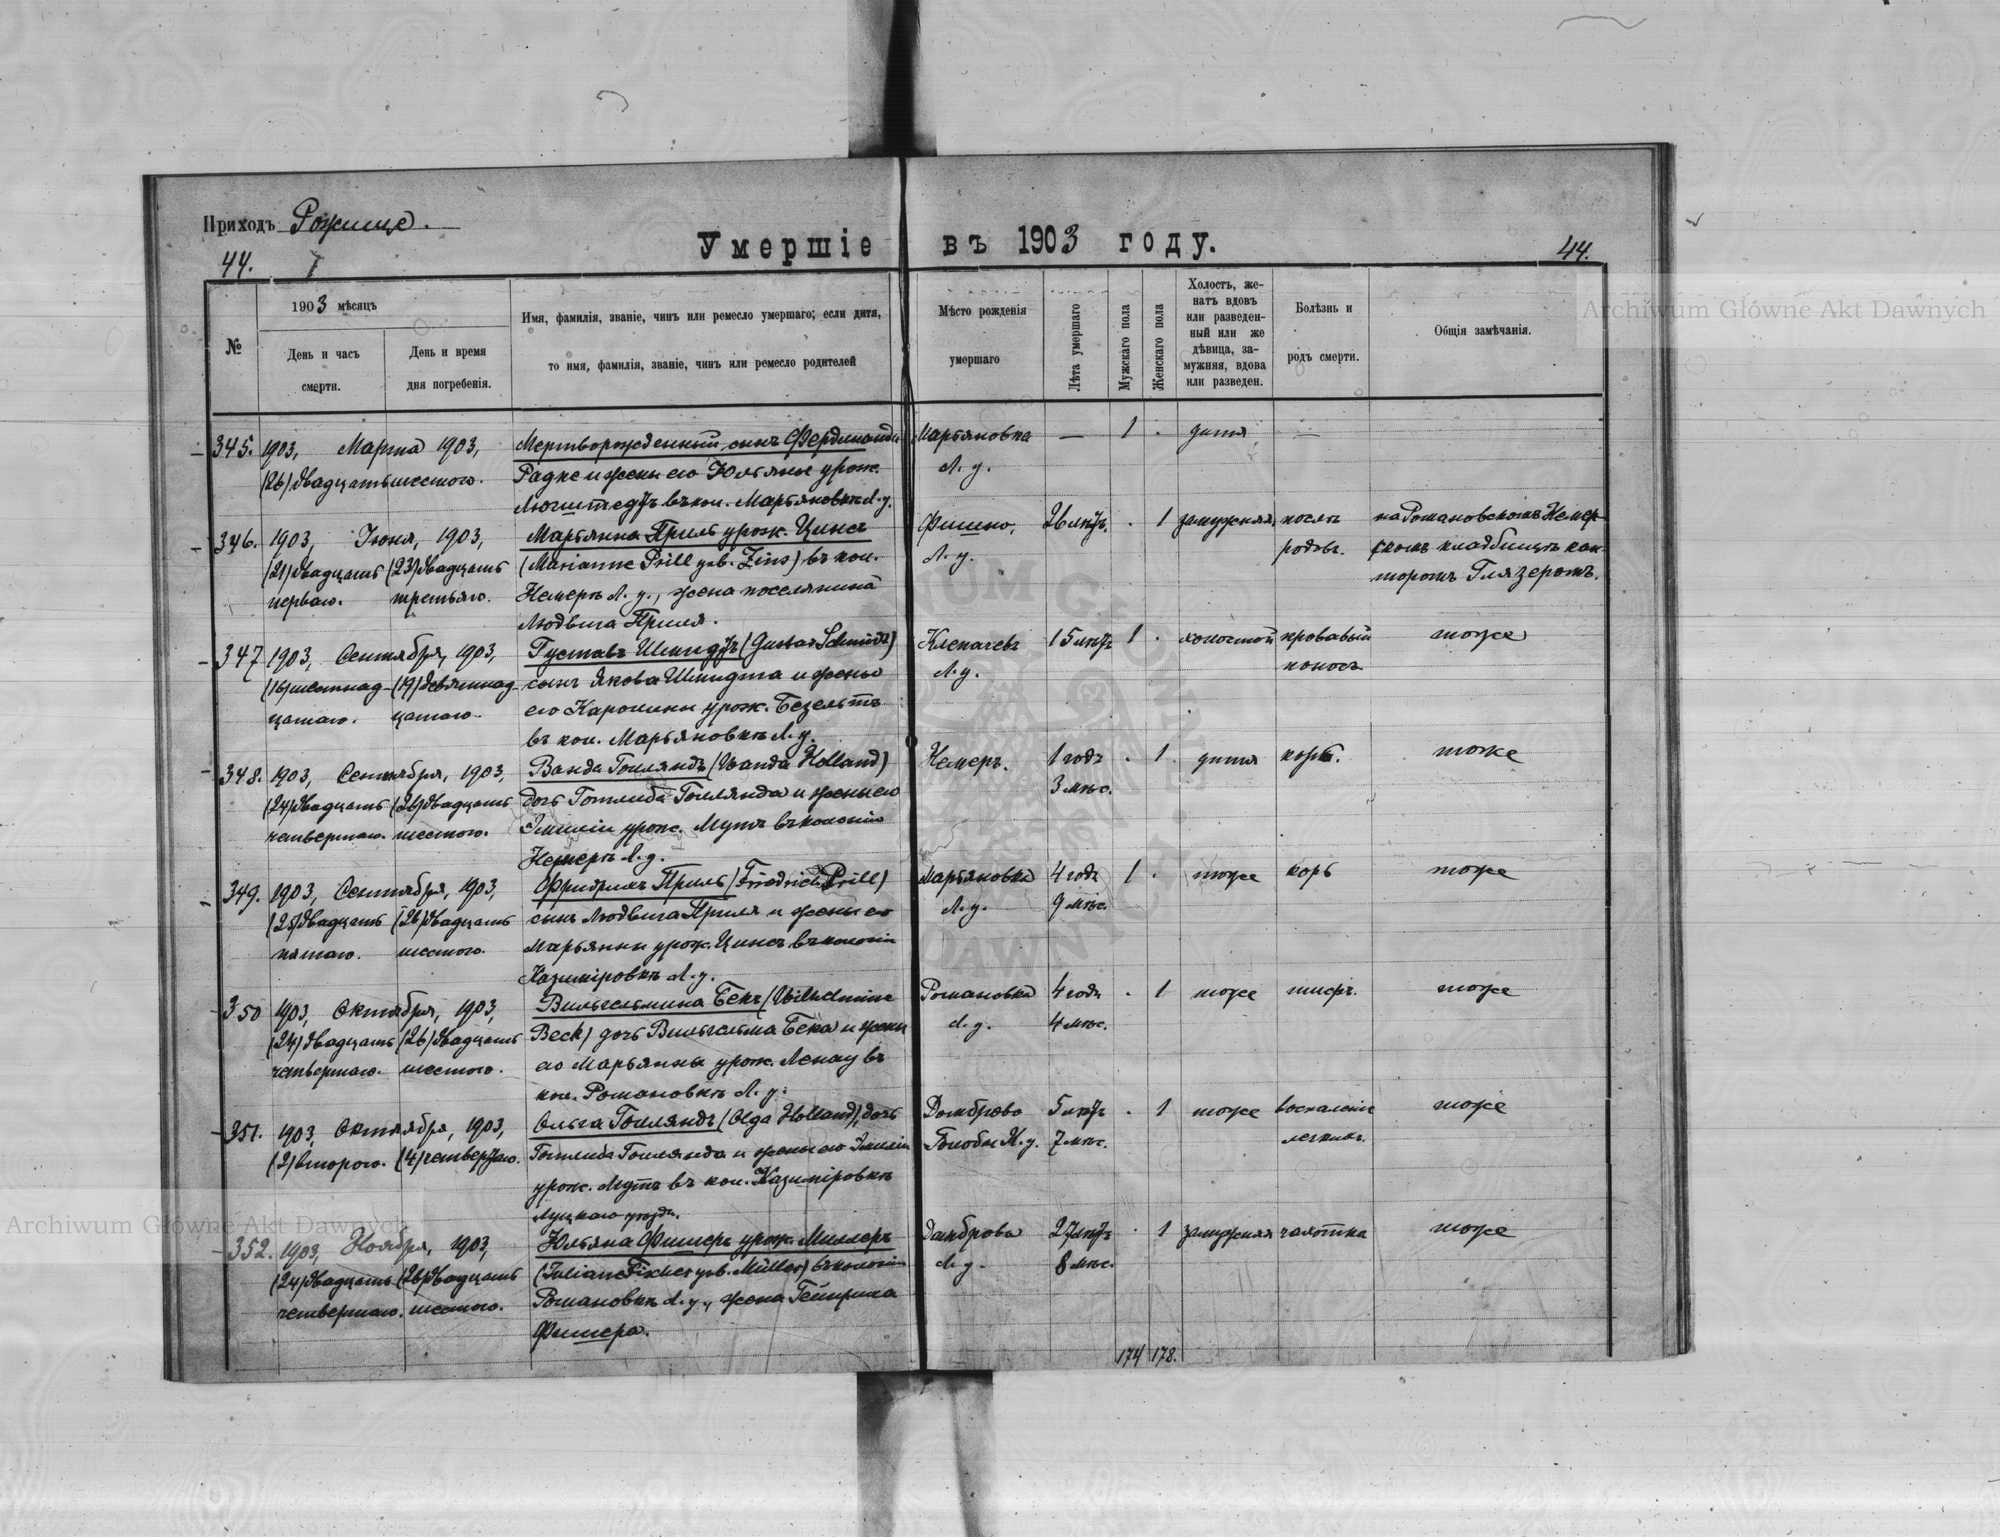 Приходъ Рожище.
Умершіе въ 1903 году.
44.
44.
№
1903 мѣсяцъ
День и часъ смерти.
День и время дня погребенія.
Имя, фамилія, званіе, чинъ или ремесло умершаго; если дитя,
то имя, фамилія, званіе, чинъ или ремесло родителей
Мѣсто рожденія
умершаго
Лѣта умершаго
Мужскаго пола
Женскаго пола
Холостъ, же-
натъ вдовъ
или разведен-
ный или же
дѣвица, за-
мужняя, вдова
или разведен.
Болѣзнь и
родъ смерти.
Общія замѣчанія.
345. 1903, Марта 1903, Мертворожденный сынъ Фердинанда Марьяновка — 1 . дитя —
(26) двадцать шестого. Радке и жены его Юльяны урож. Л. у.
въ кол. Марьяновкѣ Л. у.
346. 1903, Іюня, 1903, Марьянна Приль урож. Цинсъ Л. у. 26 лѣтъ. . 1 замужняя послѣ на Романовскомъ Немер-
(21) двадцать (23) двадцать (Marianne Prill geb. Zins) въ кол. родовъ. скомъ кладбищѣ кан-
перваго. третьяго. Немеръ Л. у., жена поселянина торомъ Глязеромъ.
Людвига Приля.
347 1903, Сентября, 1903, Густавъ Шмидтъ (Gustav Schmidt) Клепачевъ 15 лѣтъ 1 . холостой кровавый тоже
(16) шестнад- (19) девятнад- сынъ Якова Шмидта и жены Л. у. поносъ
цатаго. цатаго. его Каролины урож.
въ кол. Марьяновкѣ Л. у.
348. 1903, Сентября, 1903, Ванда Голляндъ (Wanda Holland) Немеръ. 1 годъ . 1 дитя корь. тоже
(24) двадцать (26) двадцать дочь Готлиба Голлянда и жены его 3 мѣс.
четвертаго. шестого. Эмиліи урож. Мутъ въ колоніи
Немеръ Л. у.
349. 1903, Сентября, 1903, Фридрихъ Приль (Friedrich Prill) Марьяновка 4 годъ 1 . тоже корь тоже
(25) двадцать (26) двадцать сынъ Людвига Приля и жены его Л. у. 9 мѣс.
пятаго. шестого. Марьянны урож. Цинсъ въ колоніи
Казиміровкѣ Л. у.
350 1903, Октября, 1903, Вильгельмина Бекъ (Wilhelmine Романовка 4 годъ . 1 тоже тоже
(24) двадцать (26) двадцать Beck) дочь Вильгельма Бека и жены Л. у. 4 мѣс.
четвертаго. шестого. его Марьянны урож. Ленау въ
кол. Романовкѣ Л. у.
351. 1903, Октября, 1903, Ольга Голляндъ (Olga Holland), дочь Домброва 5 лѣтъ . 1 тоже воспаленіе тоже
(2) второго. (4) четвертаго. Готлиба Голлянда и жены его Эмиліи Голобы К. у. 7 мѣс. легкихъ.
урож. Мутъ въ кол. Казиміровкѣ
Луцкаго уѣзда.
352. 1903, Ноября, 1903, Юльяна Фишеръ урож. Миллеръ Домброва 27 лѣтъ . 1 замужняя чахотка тоже
(24) двадцать (26) двадцать (Juliane Fischer geb. Müller) въ колоніи Л. у. 8 мѣс.
четвертаго. шестого. Романовкѣ Л. у., жена Гейнриха
Фишера.
174 178.
Archiwum Główne Akt Dawnych
Archiwum Główne Akt Dawnych